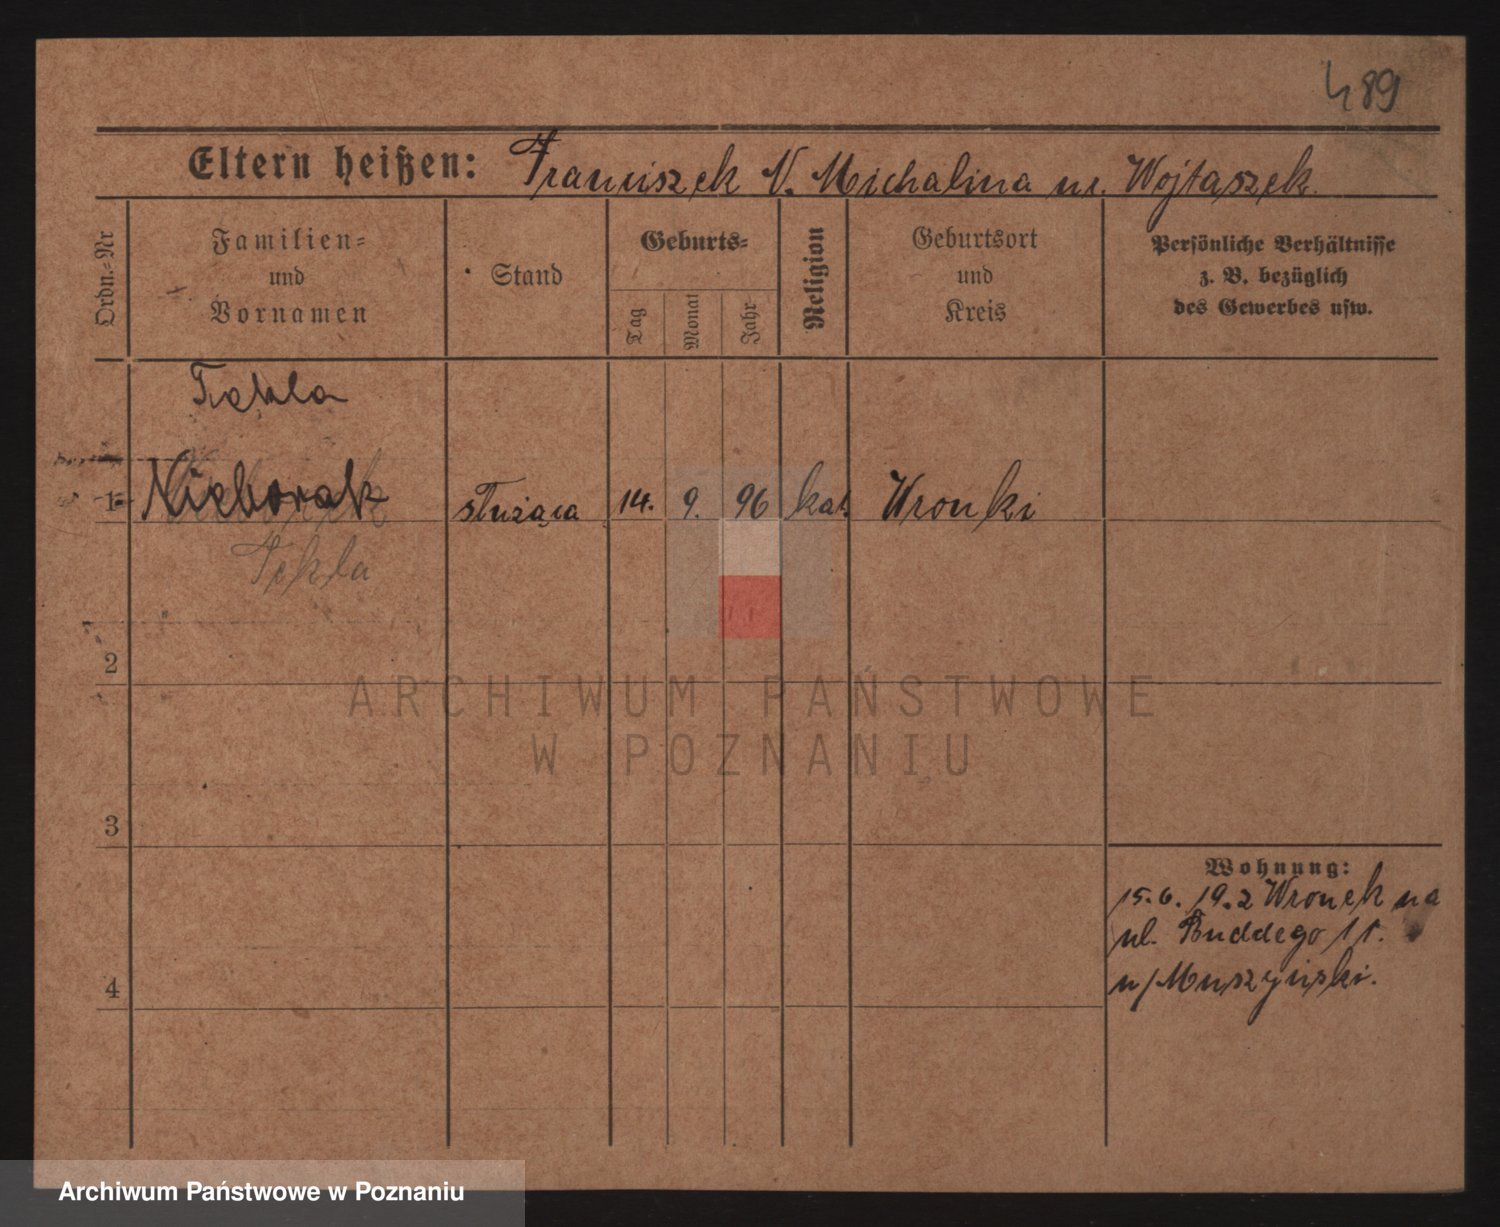 489
Eltern heißen: Franciszek N. Michalina ur. Wojtaszek.
Ordn.-Nr
Familien-
und
Vornamen
Stand
Geburts-
Tag
Monat
Jahr
Religion
Geburtsort
und
Kreis
Persönliche Verhältnisse
z. B. bezüglich
des Gewerbes usw.
Tekla
1 Nieborak służąca 14. 9. 96 kat. Wronki
Tekla
2
ARCHIWUM PAŃSTWOWE
W POZNANIU
3
Wohnung:
15.6. 19.2 Wronek na
ul. Buddego 11.
u/Muszyński.
4
Archiwum Państwowe w Poznaniu